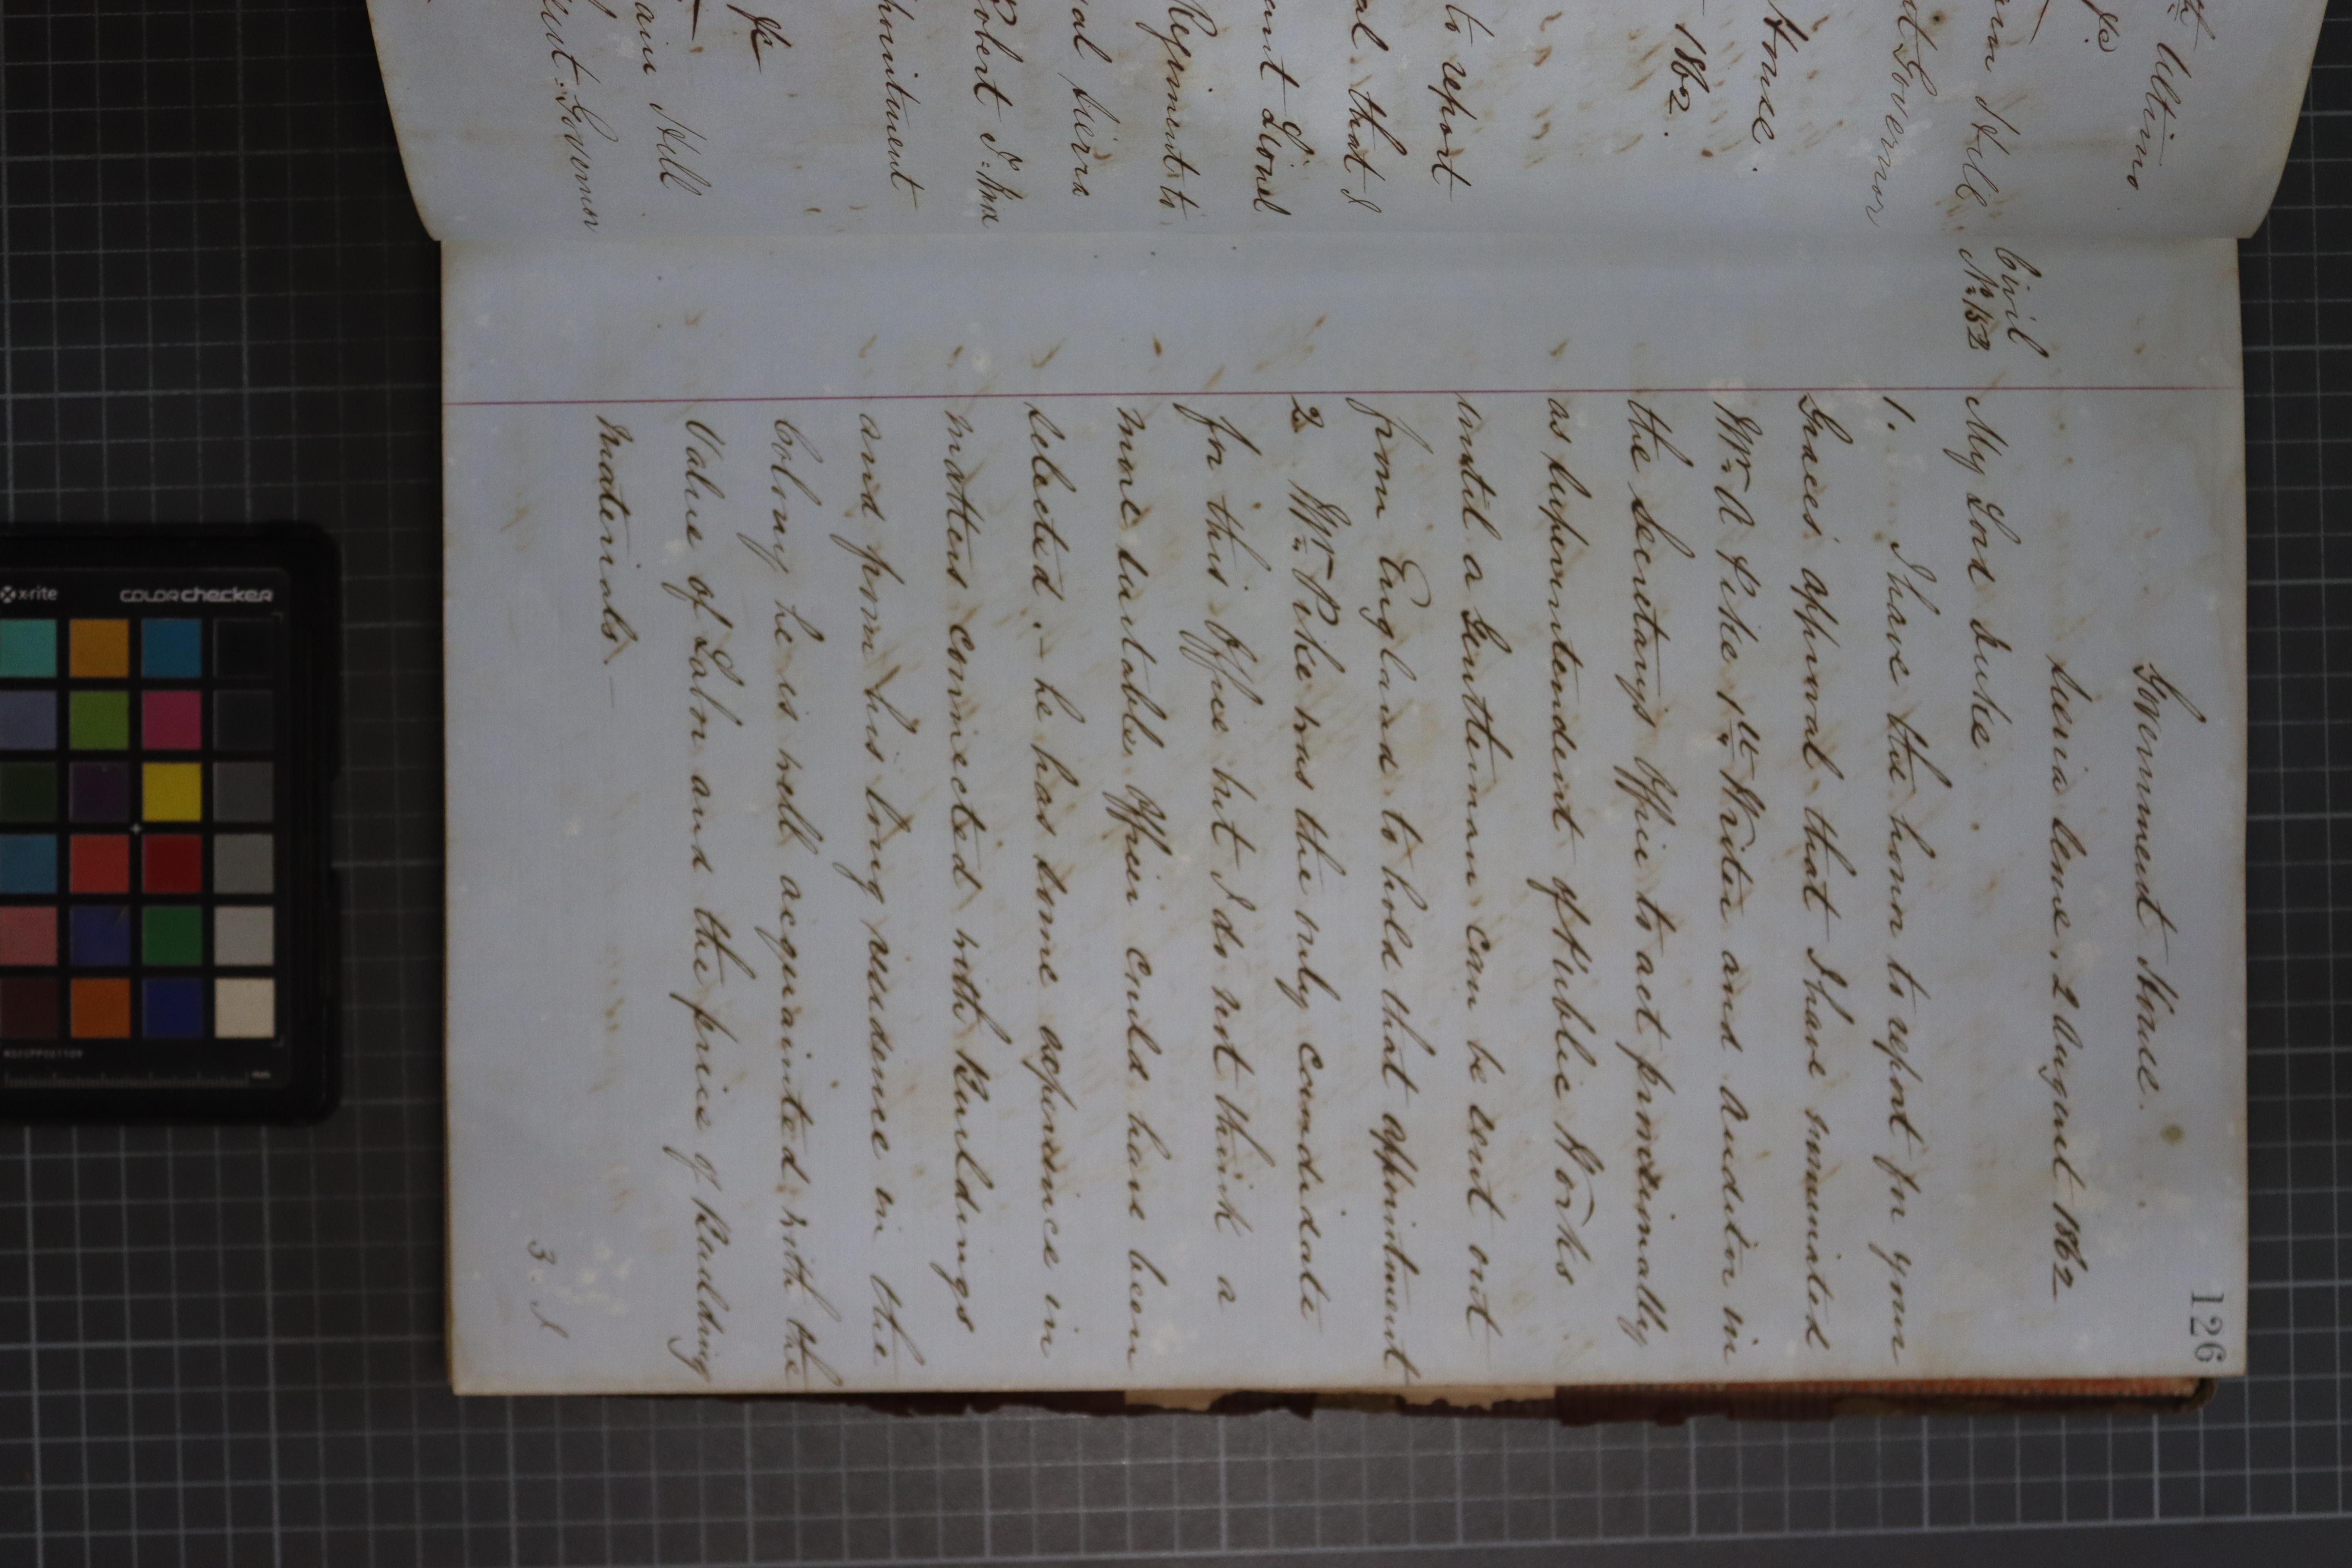 126
Government House.
Sierra Leone, 2 August 1862
Civil
No. 152
My Lord Duke
1. I have the honor to report for your
Graces approval that I have nominated
Mr. A Pike 1st Writer and Auditor in
the Secretarys Office to act provisionally
as Superintendent of Public Works
until a Gentleman can be sent out
from England to hold that appointment
2 Mr. Pike was the only candidate
for this Office but I do not think a
more suitable Officer could have been
selected. – he has some experience in
matters connected with Buildings
and from his long residence in the
Colony he is well acquainted with the
Value of Labor and the price of Building
Materials. –
3. I
Ultimo
Hill
Governor
House.
1862.
to report
that I
Lionel
Regiment to
Sierra
Robert
Hill
Governor
x-rite
colorchecker